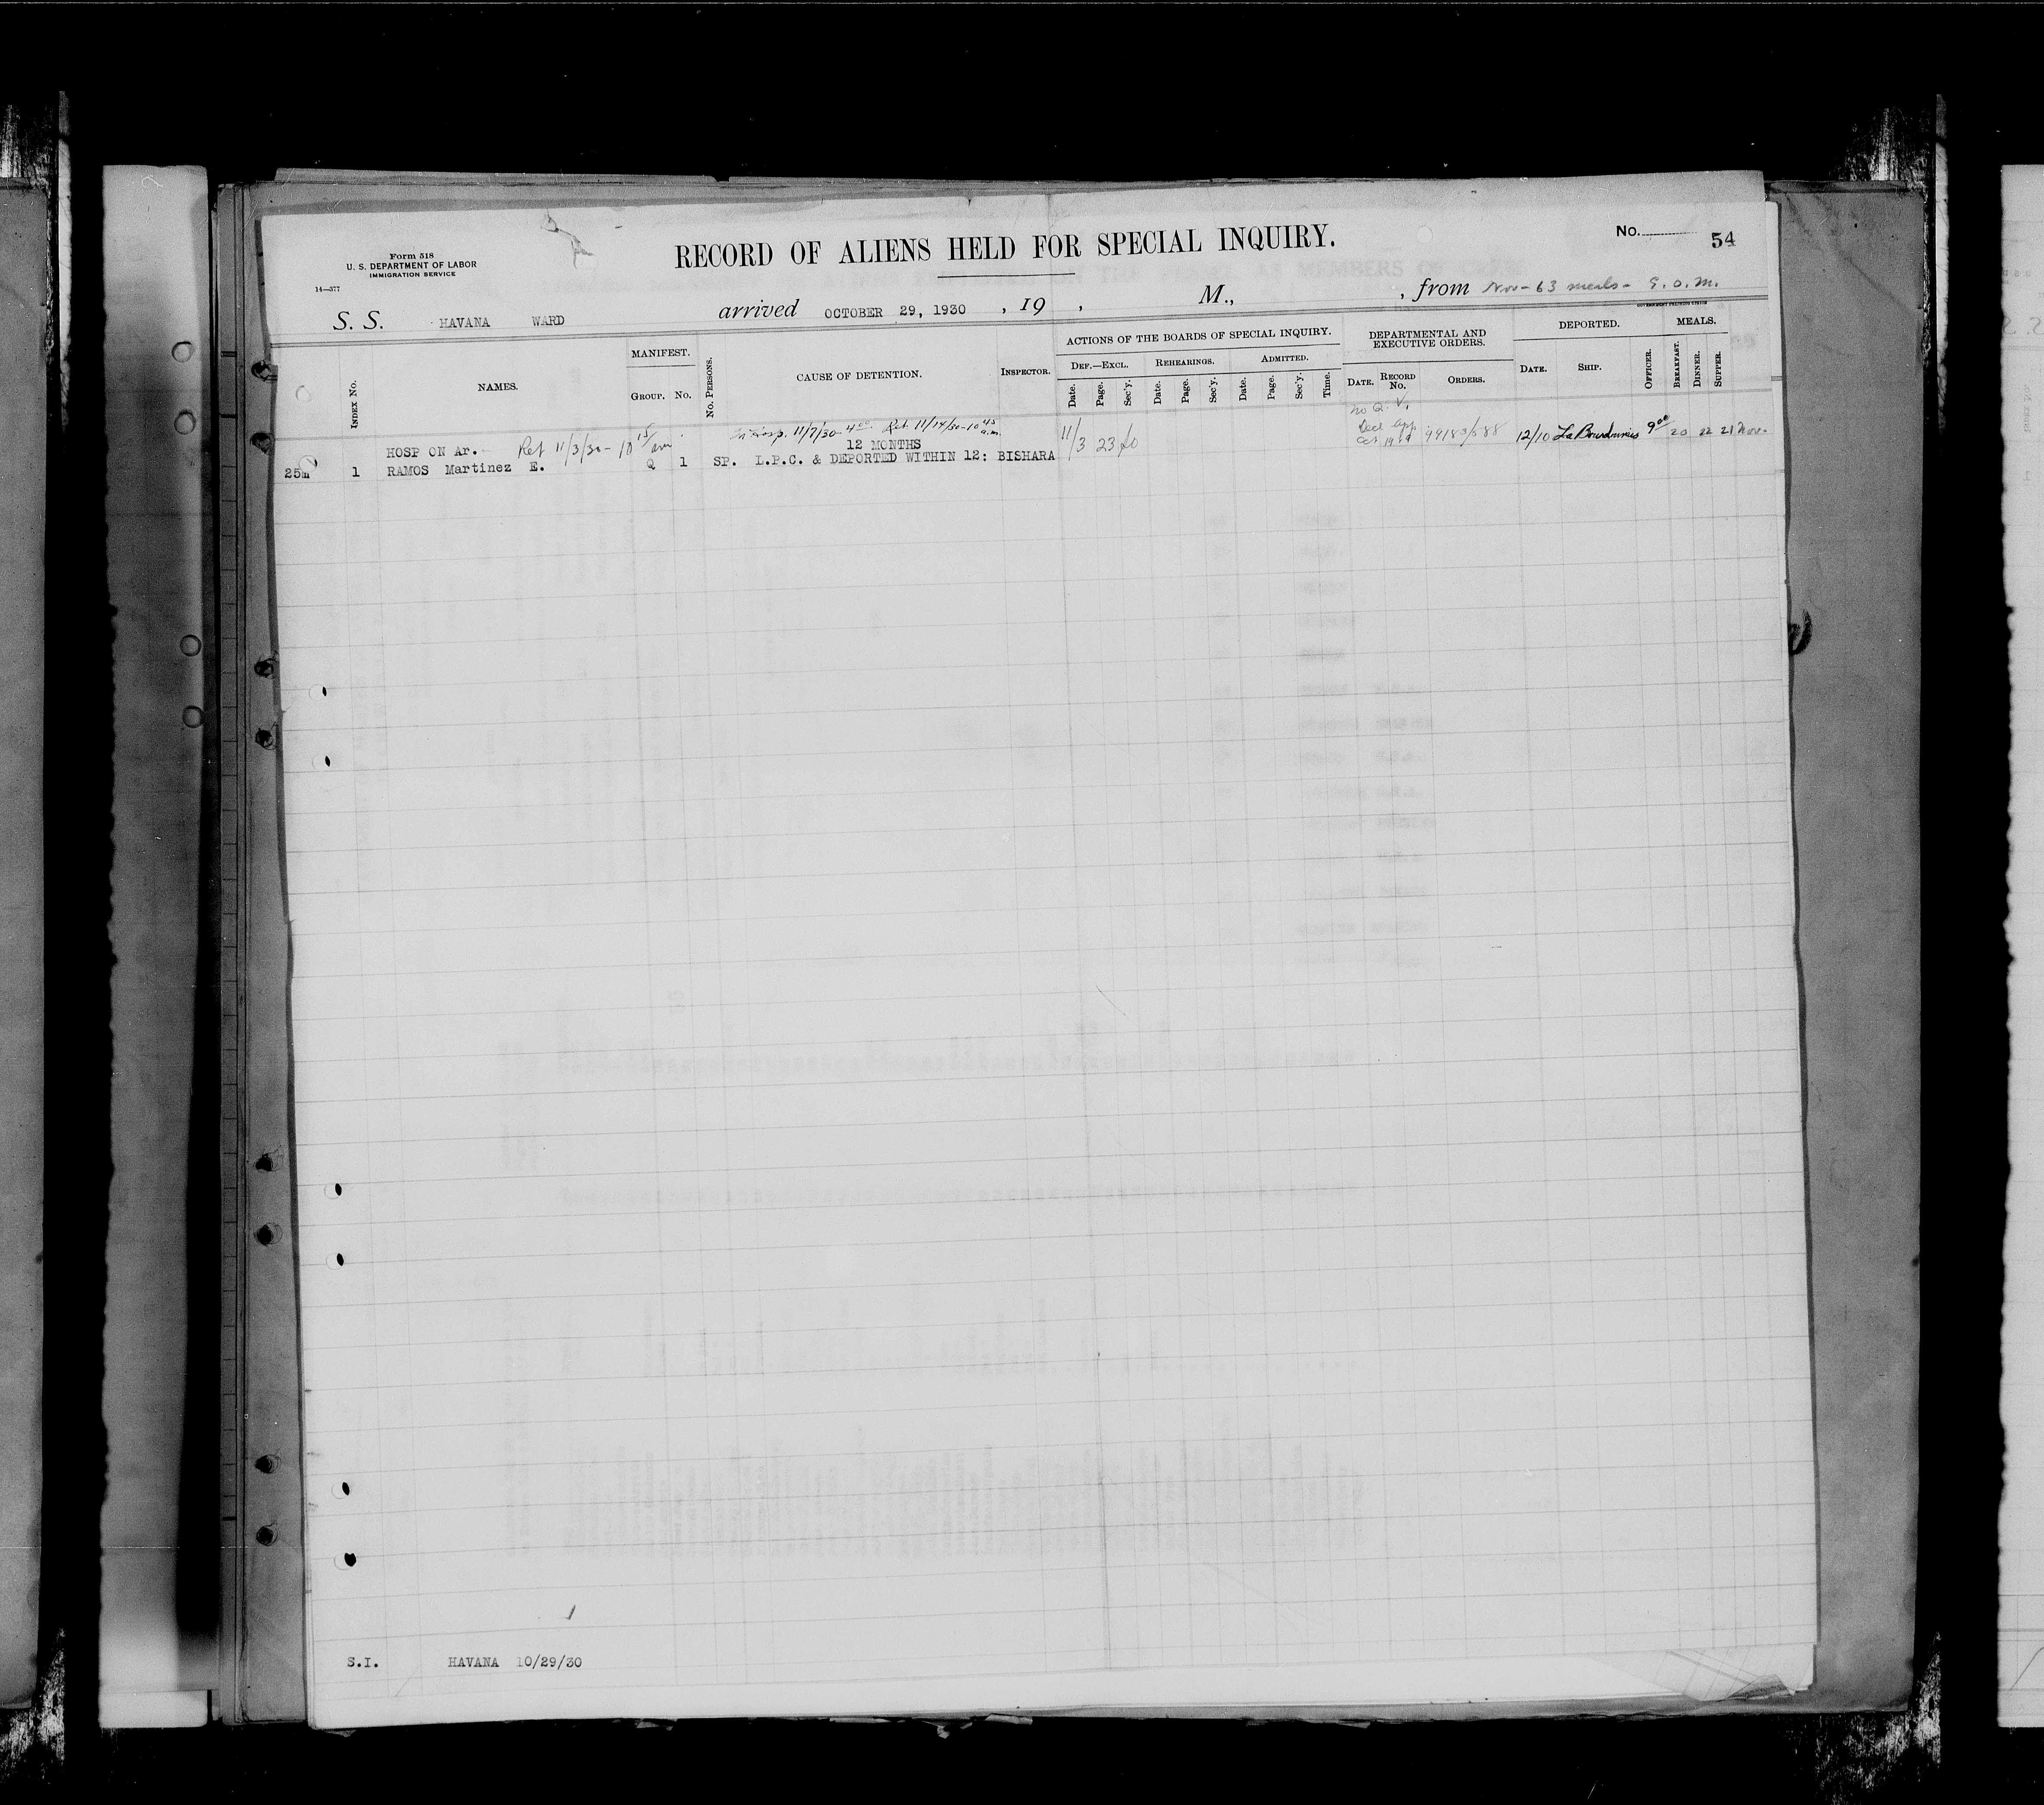 Form 518
U. S. DEPARTMENT OF LABOR
IMMIGRATION SERVICE
14—377
RECORD OF ALIENS HELD FOR SPECIAL INQUIRY.
No. 54
S. S. HAVANA WARD arrived OCTOBER 29, 1930 , 19 , M., , from Nov - 63 meals -
GOVERNMENT PRINTING OFFICE
INDEX No.
NAMES.
MANIFEST.
GROUP. No.
No. PERSONS.
CAUSE OF DETENTION.
INSPECTOR.
ACTIONS OF THE BOARDS OF SPECIAL INQUIRY.
DEF.—EXCL. REHEARINGS. ADMITTED.
Date. Page. Sec'y. Date. Page. Sec'y. Date. Page. Sec'y. Time.
DEPARTMENTAL AND
EXECUTIVE ORDERS.
DATE. RECORD No. ORDERS.
DEPORTED.
DATE. SHIP. OFFICER.
MEALS.
BREAKFAST. DINNER. SUPPER.
No Q. V.
11/7/30 - 4 00 Ret 11/14/30 - 10 45 a.m.
12 MONTHS
HOSP ON Ar. Ret 11/3/30 - 10 15 am
11/3 23
99183/588 12/10 La Bourdonnais 9 00 20 22 21 Nov-
25m 1 RAMOS Martinez E. Q 1 SP. L.P.C. & DEPORTED WITHIN 12: BISHARA
S.I. HAVANA 10/29/30